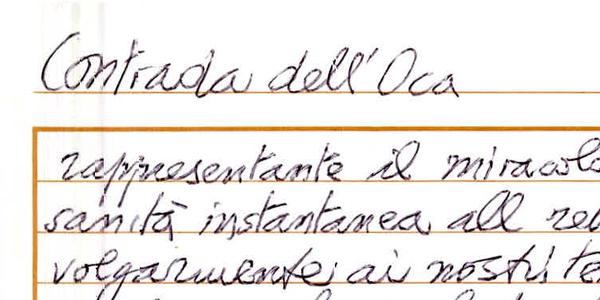 Contrada dell'Oca
rappresentante il miracolo
sanità instantanea all
volgarmente ai nostri te